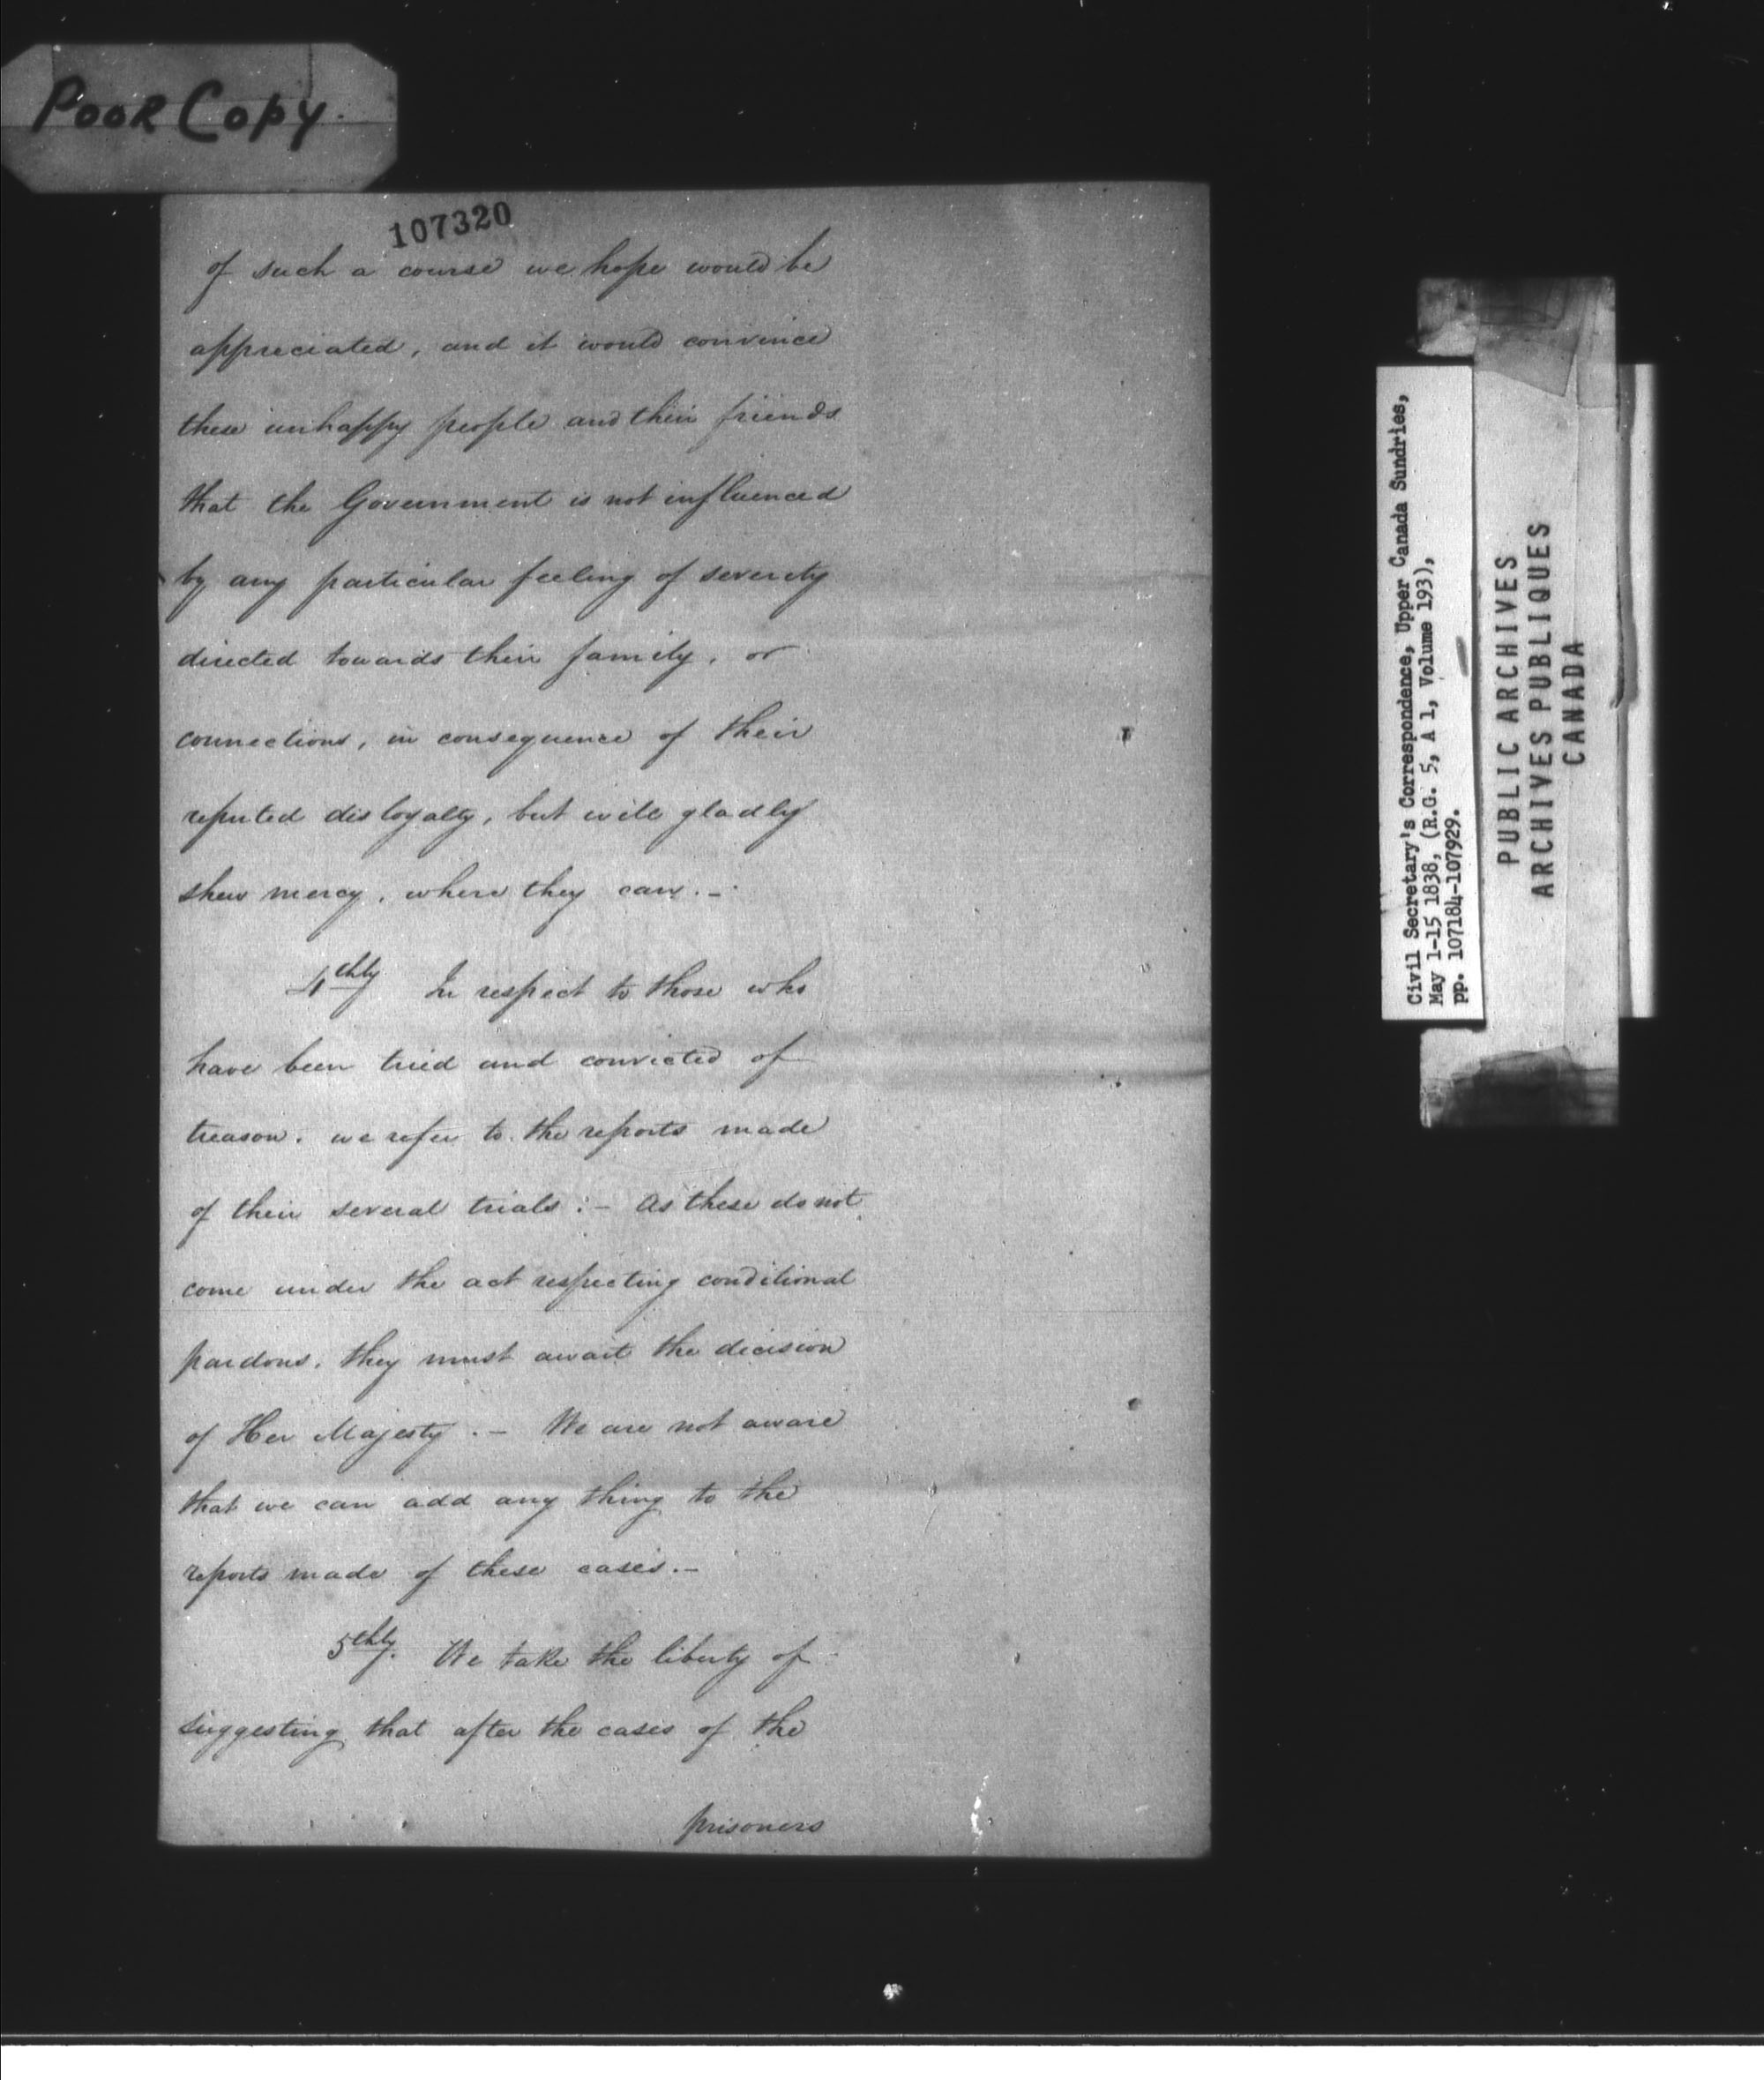 Poor Copy.
107320
of such a course we hope would be
appreciated, and it would convince
these unhappy people and their friends
that the Government is not influenced
by any particular feeling of severity
directed towards their family, or
connections, in consequence of their
reputed disloyalty, but will gladly
shew mercy, where they can.-
4thly In respect to those who
have been tried and convicted of
treason. we refer to the reports made
of their several trials :- As these do not
come under the act respecting conditional
pardons, they must await the decision
of Her Majesty .- We are not aware
that we can add any thing to the
reports made of these cases.-
5thly. We take the liberty of
suggesting that after the cases of the
prisoners
Civil Secretary's Correspondence, Upper Canada Sundries,
May 1-15 1838, (R.G. 5, A 1, Volume 193),
pp. 107184-107929.
PUBLIC ARCHIVES
ARCHIVES PUBLIQUES
CANADA